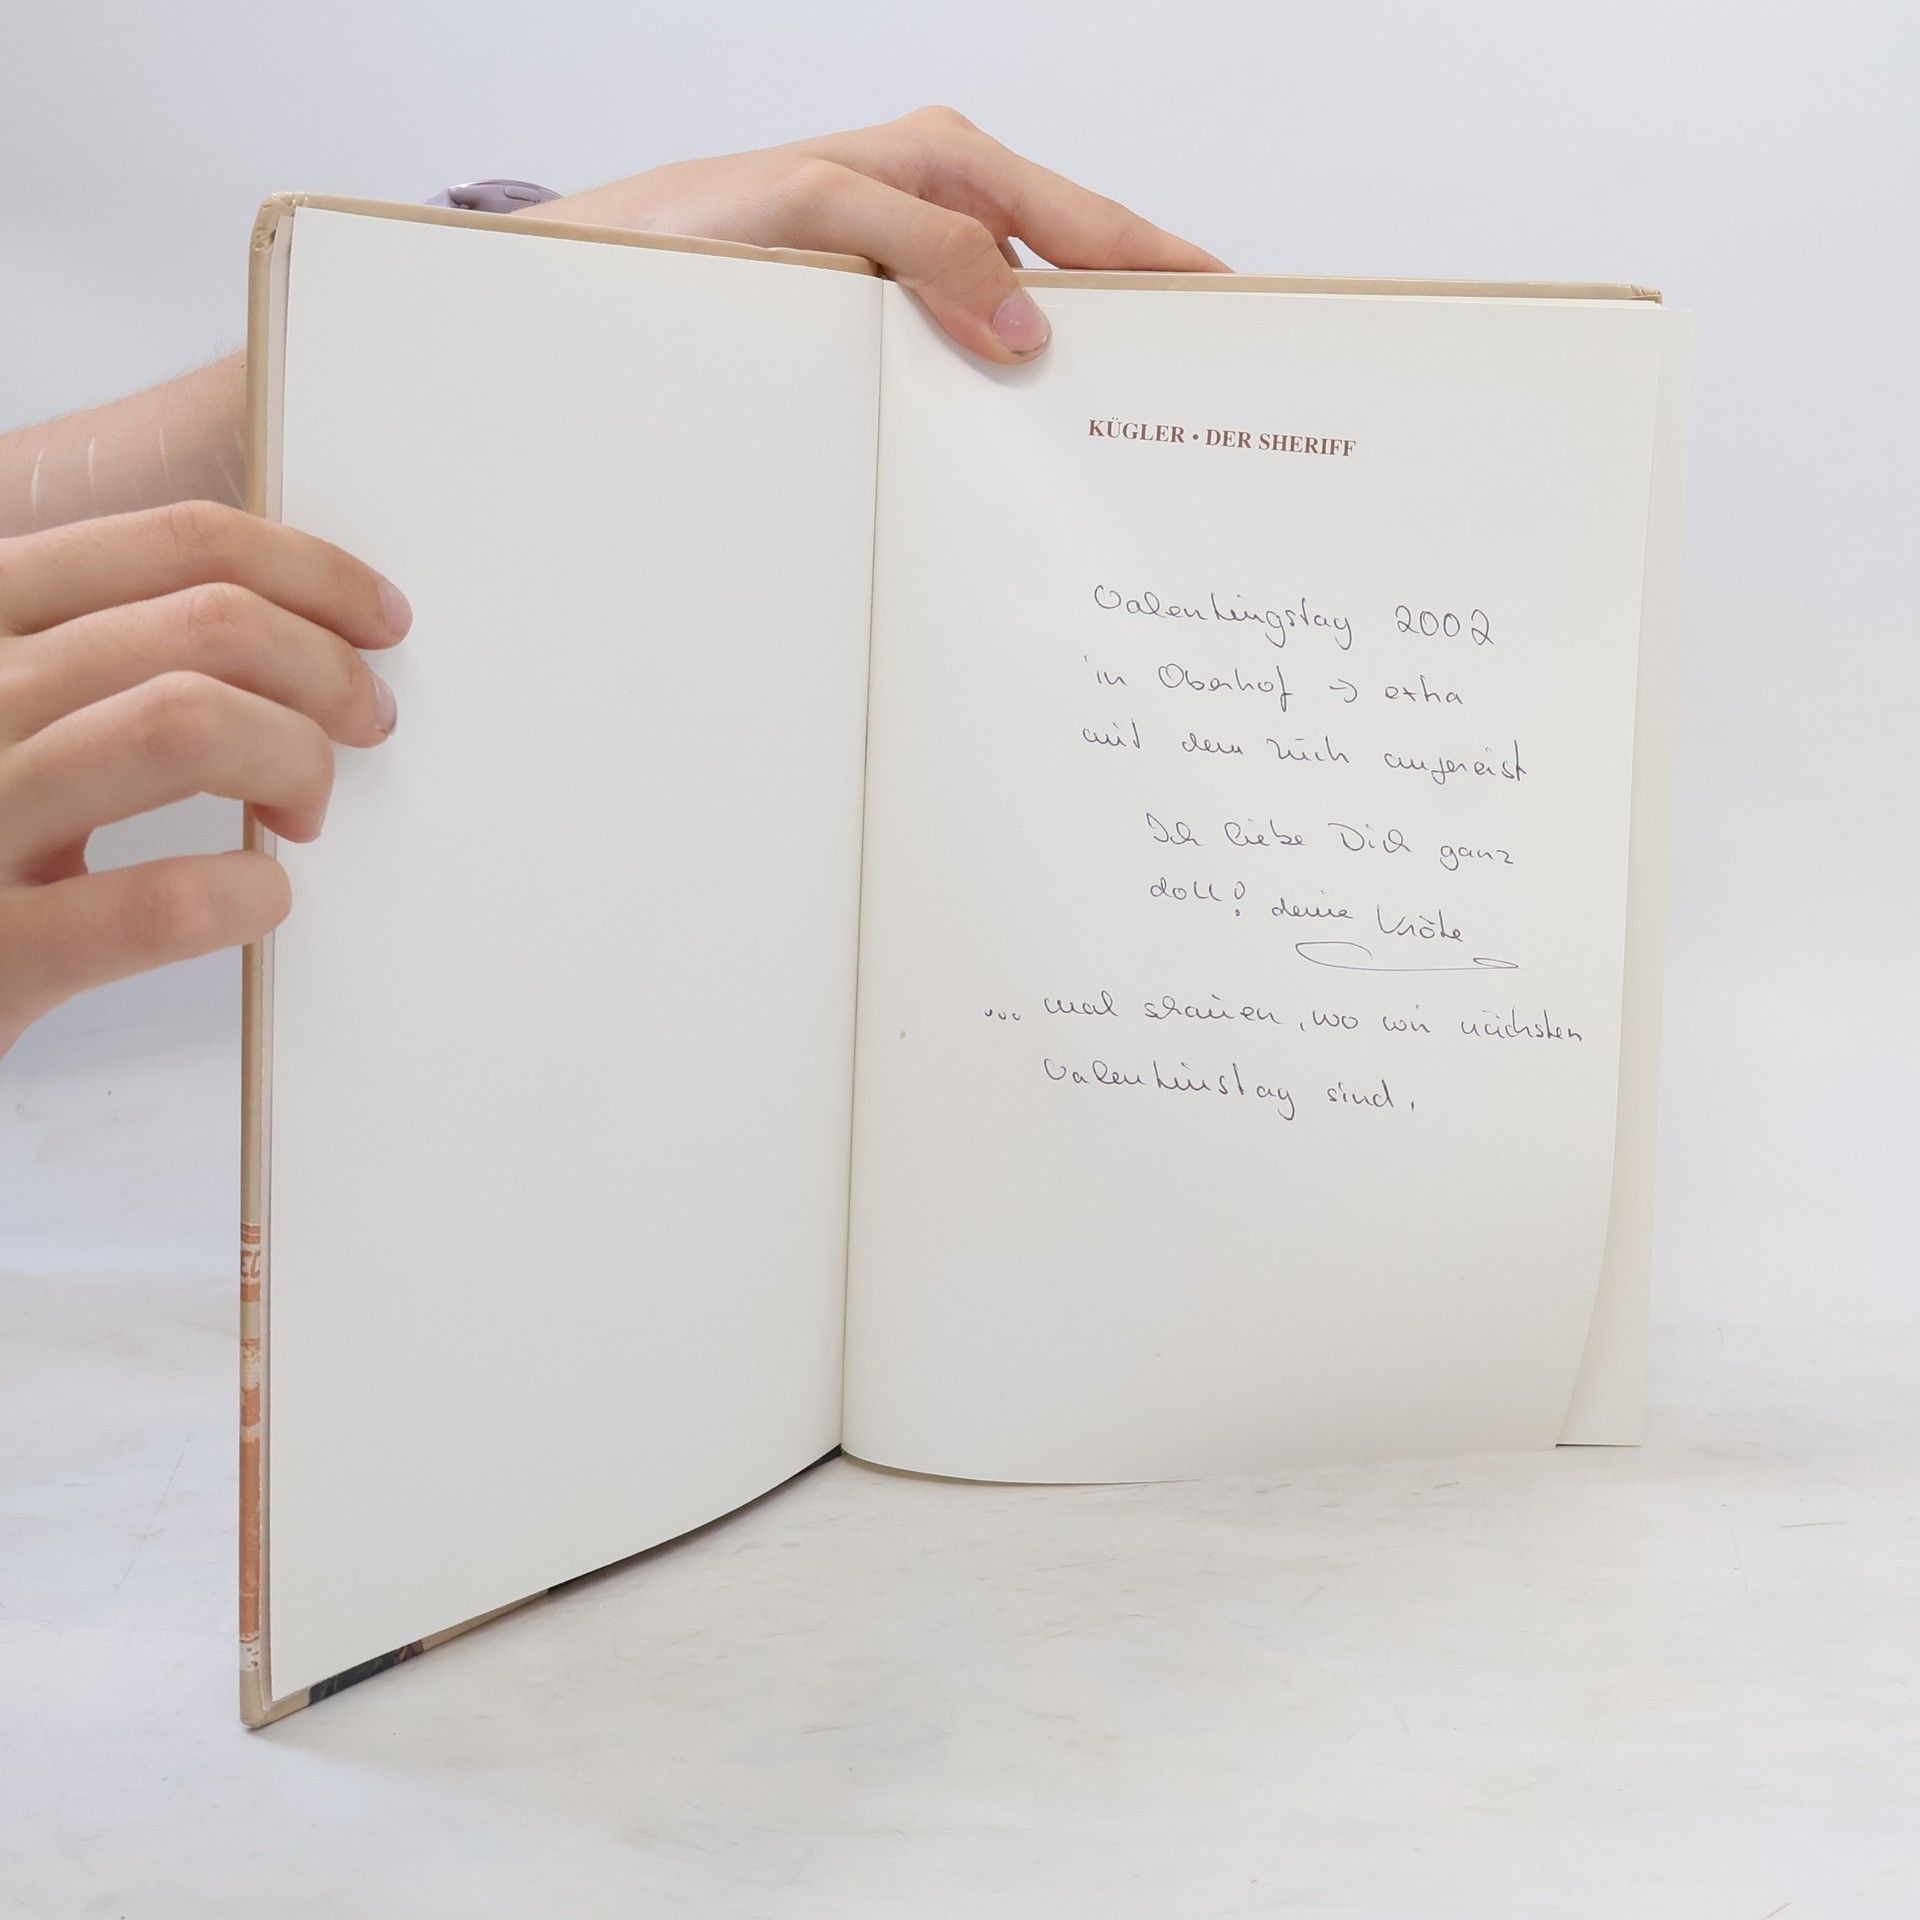 KÜGLER • DER SHERIFF
Valentingstag 2002
in Oberhof → extra
mit dem angereist
Ich liebe Dich ganz
doll! deine Kröte
... mal schauen, wo wir nächsten
Valentinstag sind.